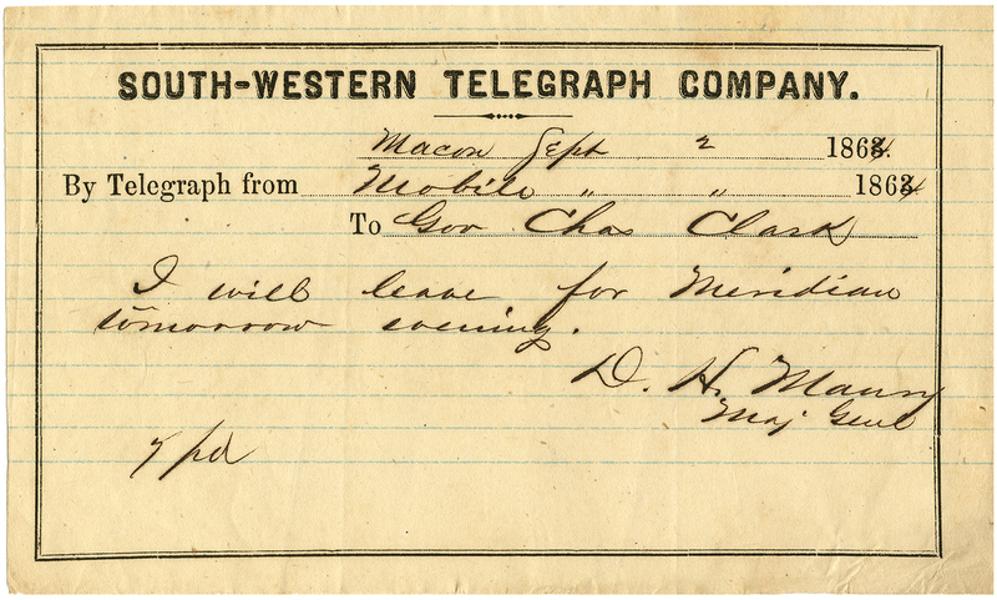 SOUTH-WESTERN TELEGRAPH COMPANY.
Macon Sept 2 1864.
By Telegraph from Mobile " " 1864
To Gov Chas Clark
I will leave for Meridian
tomorrow evening.
D. H. Maury
Maj Genl
7 pd